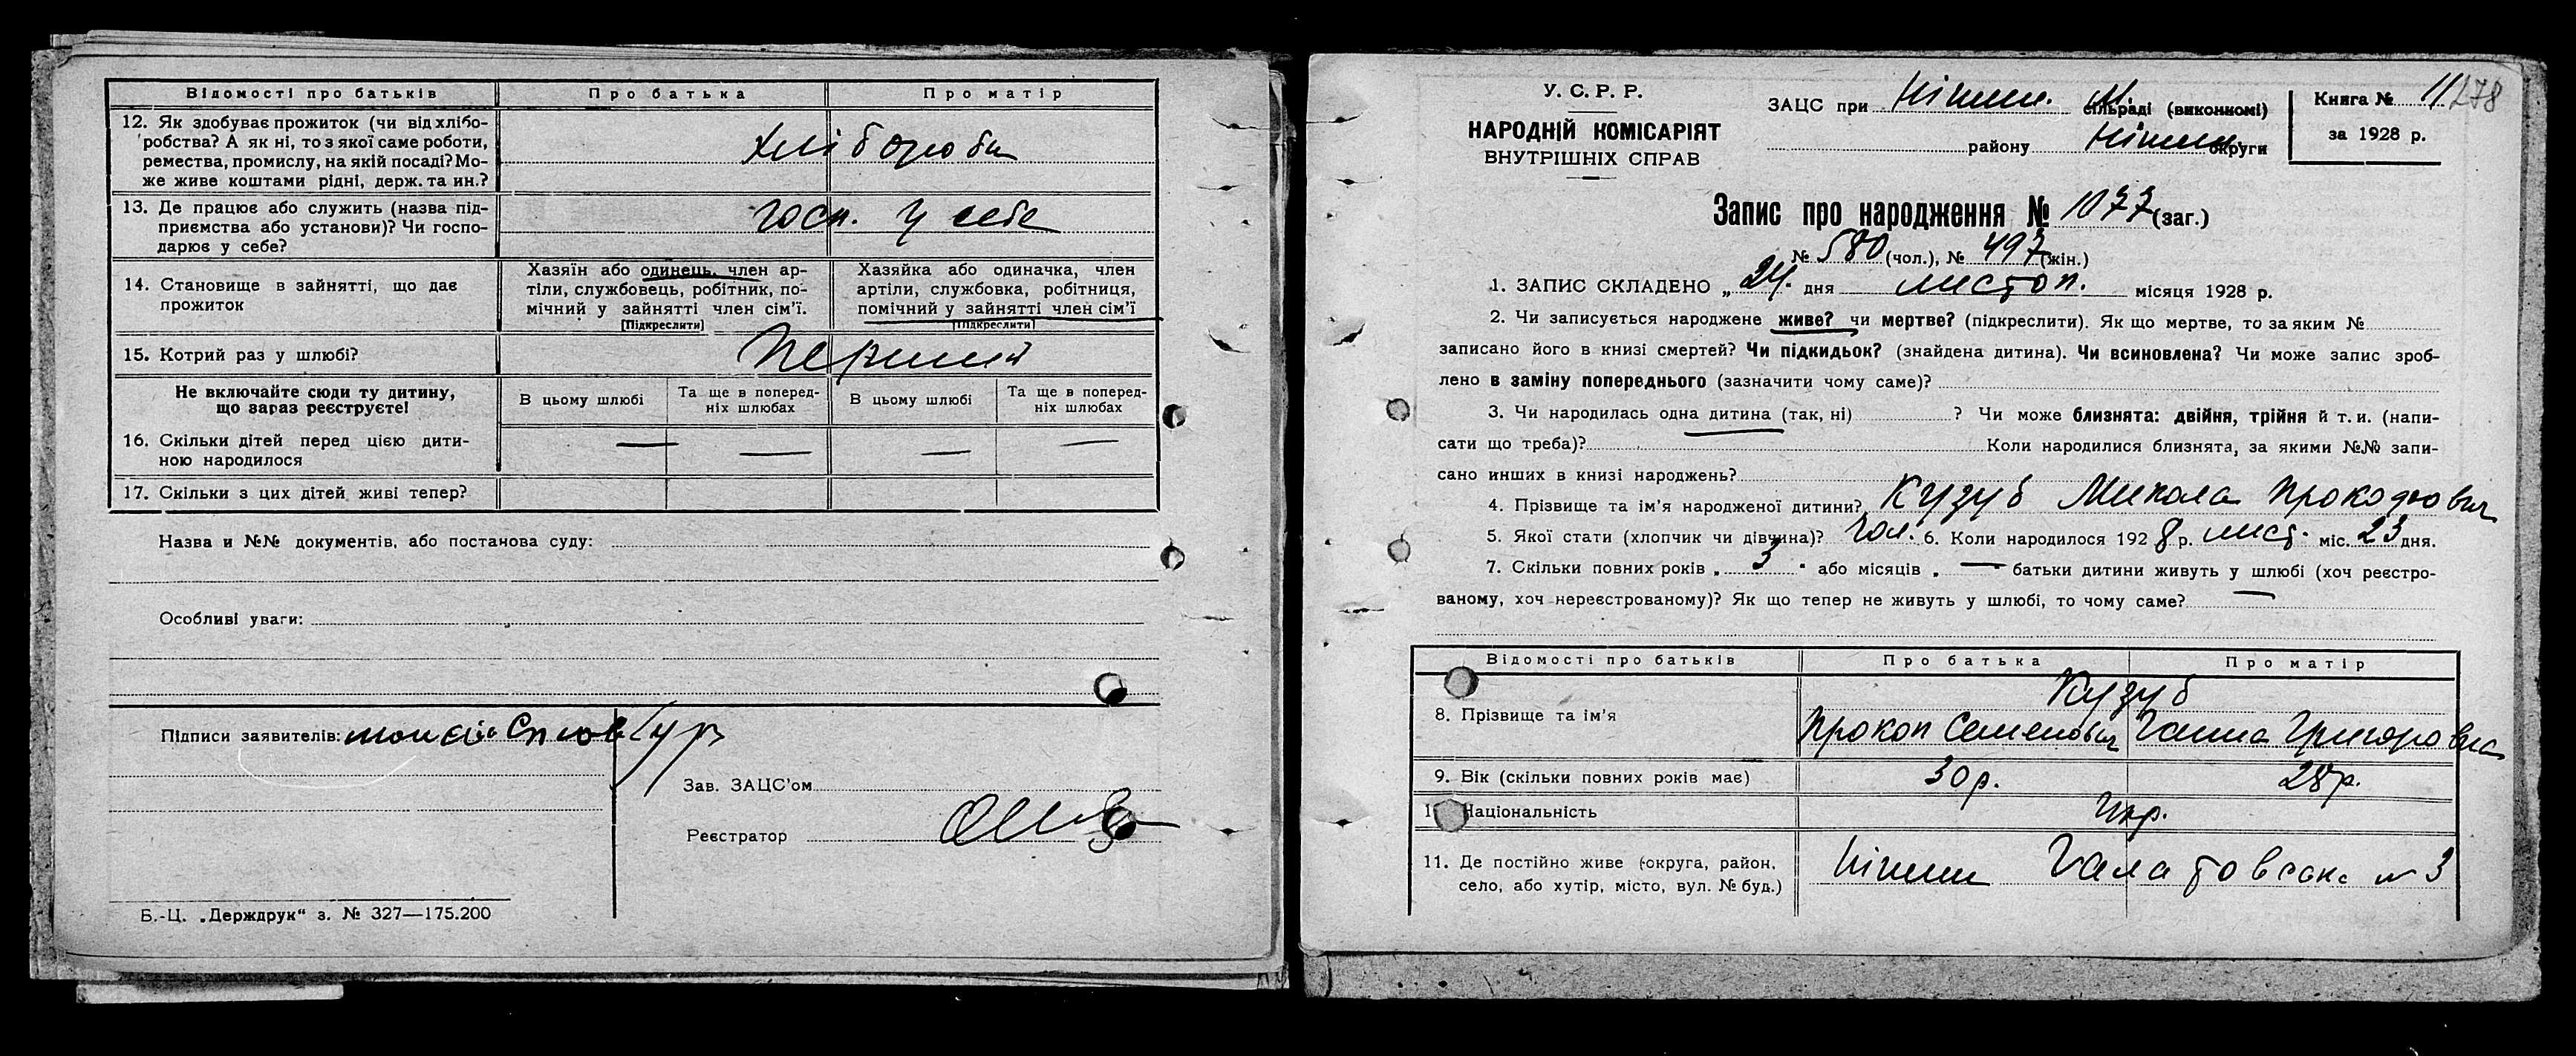 Відомості про батьків Про батька Про матір
12. Як здобуває прожиток (чи від хлібо-
робства? А як ні, то з якої саме роботи,
ремества, промислу, на якій посаді? Мо-
же живе коштами рідні, держ. та ин.?
хлібороби
13. Де працює або служить (назва під-
приємства або установи)? Чи госпо-
дарює у себе?
госп. у себе
14. Становище в зайнятті, що дає
прожиток
Хазяїн або одинець, член ар-
тіли, службовець, робітник, по-
мічний у зайнятті член сім'ї.
(Підкреслити)
Хазяйка або одиначка, член
артіли, службовка, робітниця,
помічний у зайнятті член сім'ї
(Підкреслити)
15. Котрий раз у шлюбі? перший
Не включайте сюди ту дитину,
що зараз реєструєте!
В цьому шлюбі
Та ще в поперед-
ніх шлюбах
В цьому шлюбі
Та ще в поперед-
ніх шлюбах
16. Скільки дітей перед цією дити-
ною народилося
— — — —
17. Скільки з цих дітей живі тепер?
Назва и №№ документів, або постанова суду:
Особливі уваги:
Підписи заявителів:
Зав. ЗАЦС'ом
Реєстратор
Б.-Ц. „Держдрук“ з. № 327—175.200
У. С. Р. Р.
НАРОДНІЙ КОМІСАРІЯТ
ВНУТРІШНІХ СПРАВ
ЗАЦС при Ніжин. м. сільраді (виконкомі)
району Ніжин. округи
Книга № 11
за 1928 р.
278
Запис про народження № 1077 (заг.)
№ 580 (чол.), № 497 (жін.)
1. ЗАПИС СКЛАДЕНО „24. дня листоп. місяця 1928 р.
2. Чи записується народжене живе? чи мертве? (підкреслити). Як що мертве, то за яким №
записано його в книзі смертей? Чи підкидьок? (знайдена дитина). Чи всиновлена? Чи може запис зроб-
лено в заміну попереднього (зазначити чому саме)?
3. Чи народилась одна дитина (так, ні) ? Чи може близнята: двійня, трійня й т. и. (напи-
сати що треба)? Коли народилися близнята, за якими №№ запи-
сано инших в книзі народжень?
4. Прізвище та ім'я народженої дитини? Кузуб Микола Прокопович
5. Якої стати (хлопчик чи дівчина)? чол. 6. Коли народилося 1928 р. лист. міс. 23 дня.
7. Скільки повних років „ 3 “ або місяців „ — батьки дитини живуть у шлюбі (хоч реєстро-
ваному, хоч нереєстрованому)? Як що тепер не живуть у шлюбі, то чому саме? —
Відомості про батьків Про батька Про матір
Кузуб
8. Прізвище та ім'я Прокоп Семенович Ганна Григоровна
9. Вік (скільки повних років має) 30 р. 28 р.
Національність Укр.
11. Де постійно живе (округа, район,
село, або хутір, місто, вул. № буд.)
Ніжин № 3